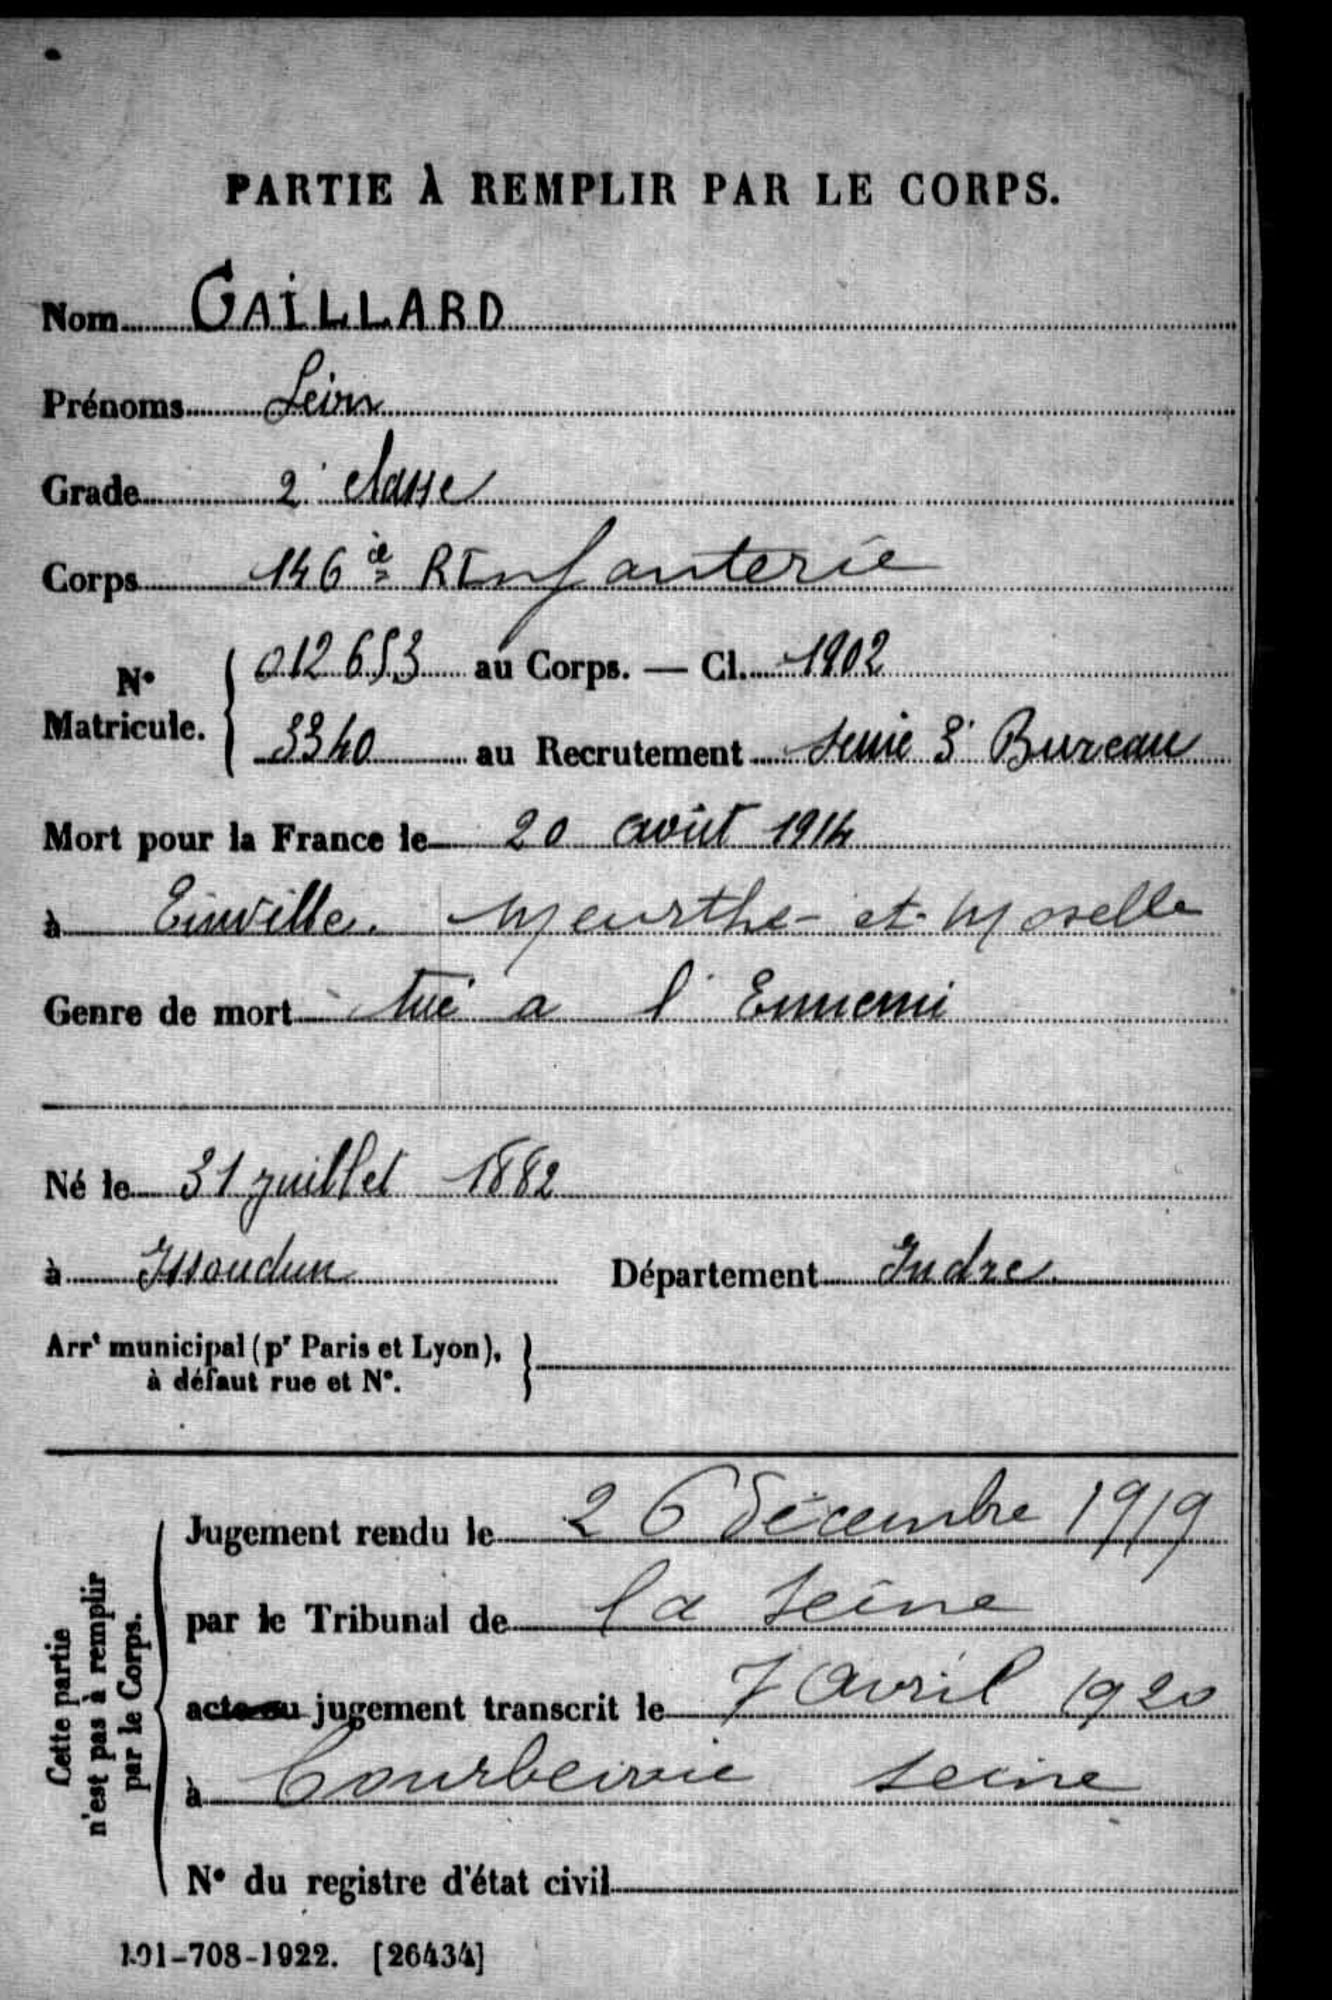 PARTIE À REMPLIR PAR LE CORPS.
Nom GAILLARD
Prénoms Léon
Grade 2e classe
Corps 146e R Infanterie
N° Matricule. 012653 au Corps. — Cl. 1902
3340 au Recrutement Seine 3e Bureau
Mort pour la France le 20 août 1914
à Einville. Meurthe-et-Moselle
Genre de mort tué a l'Ennemi
Né le 31 juillet 1882
à Issoudun Département Indre
Arrt municipal (pr Paris et Lyon),
à défaut rue et N°.
Cette partie n'est pas à remplir par le Corps.
Jugement rendu le 26 décembre 1919
par le Tribunal de la Seine
acte ou jugement transcrit le 7 avril 1920
à Courbevoie Seine
N° du registre d'état civil
101-708-1922. [26434]